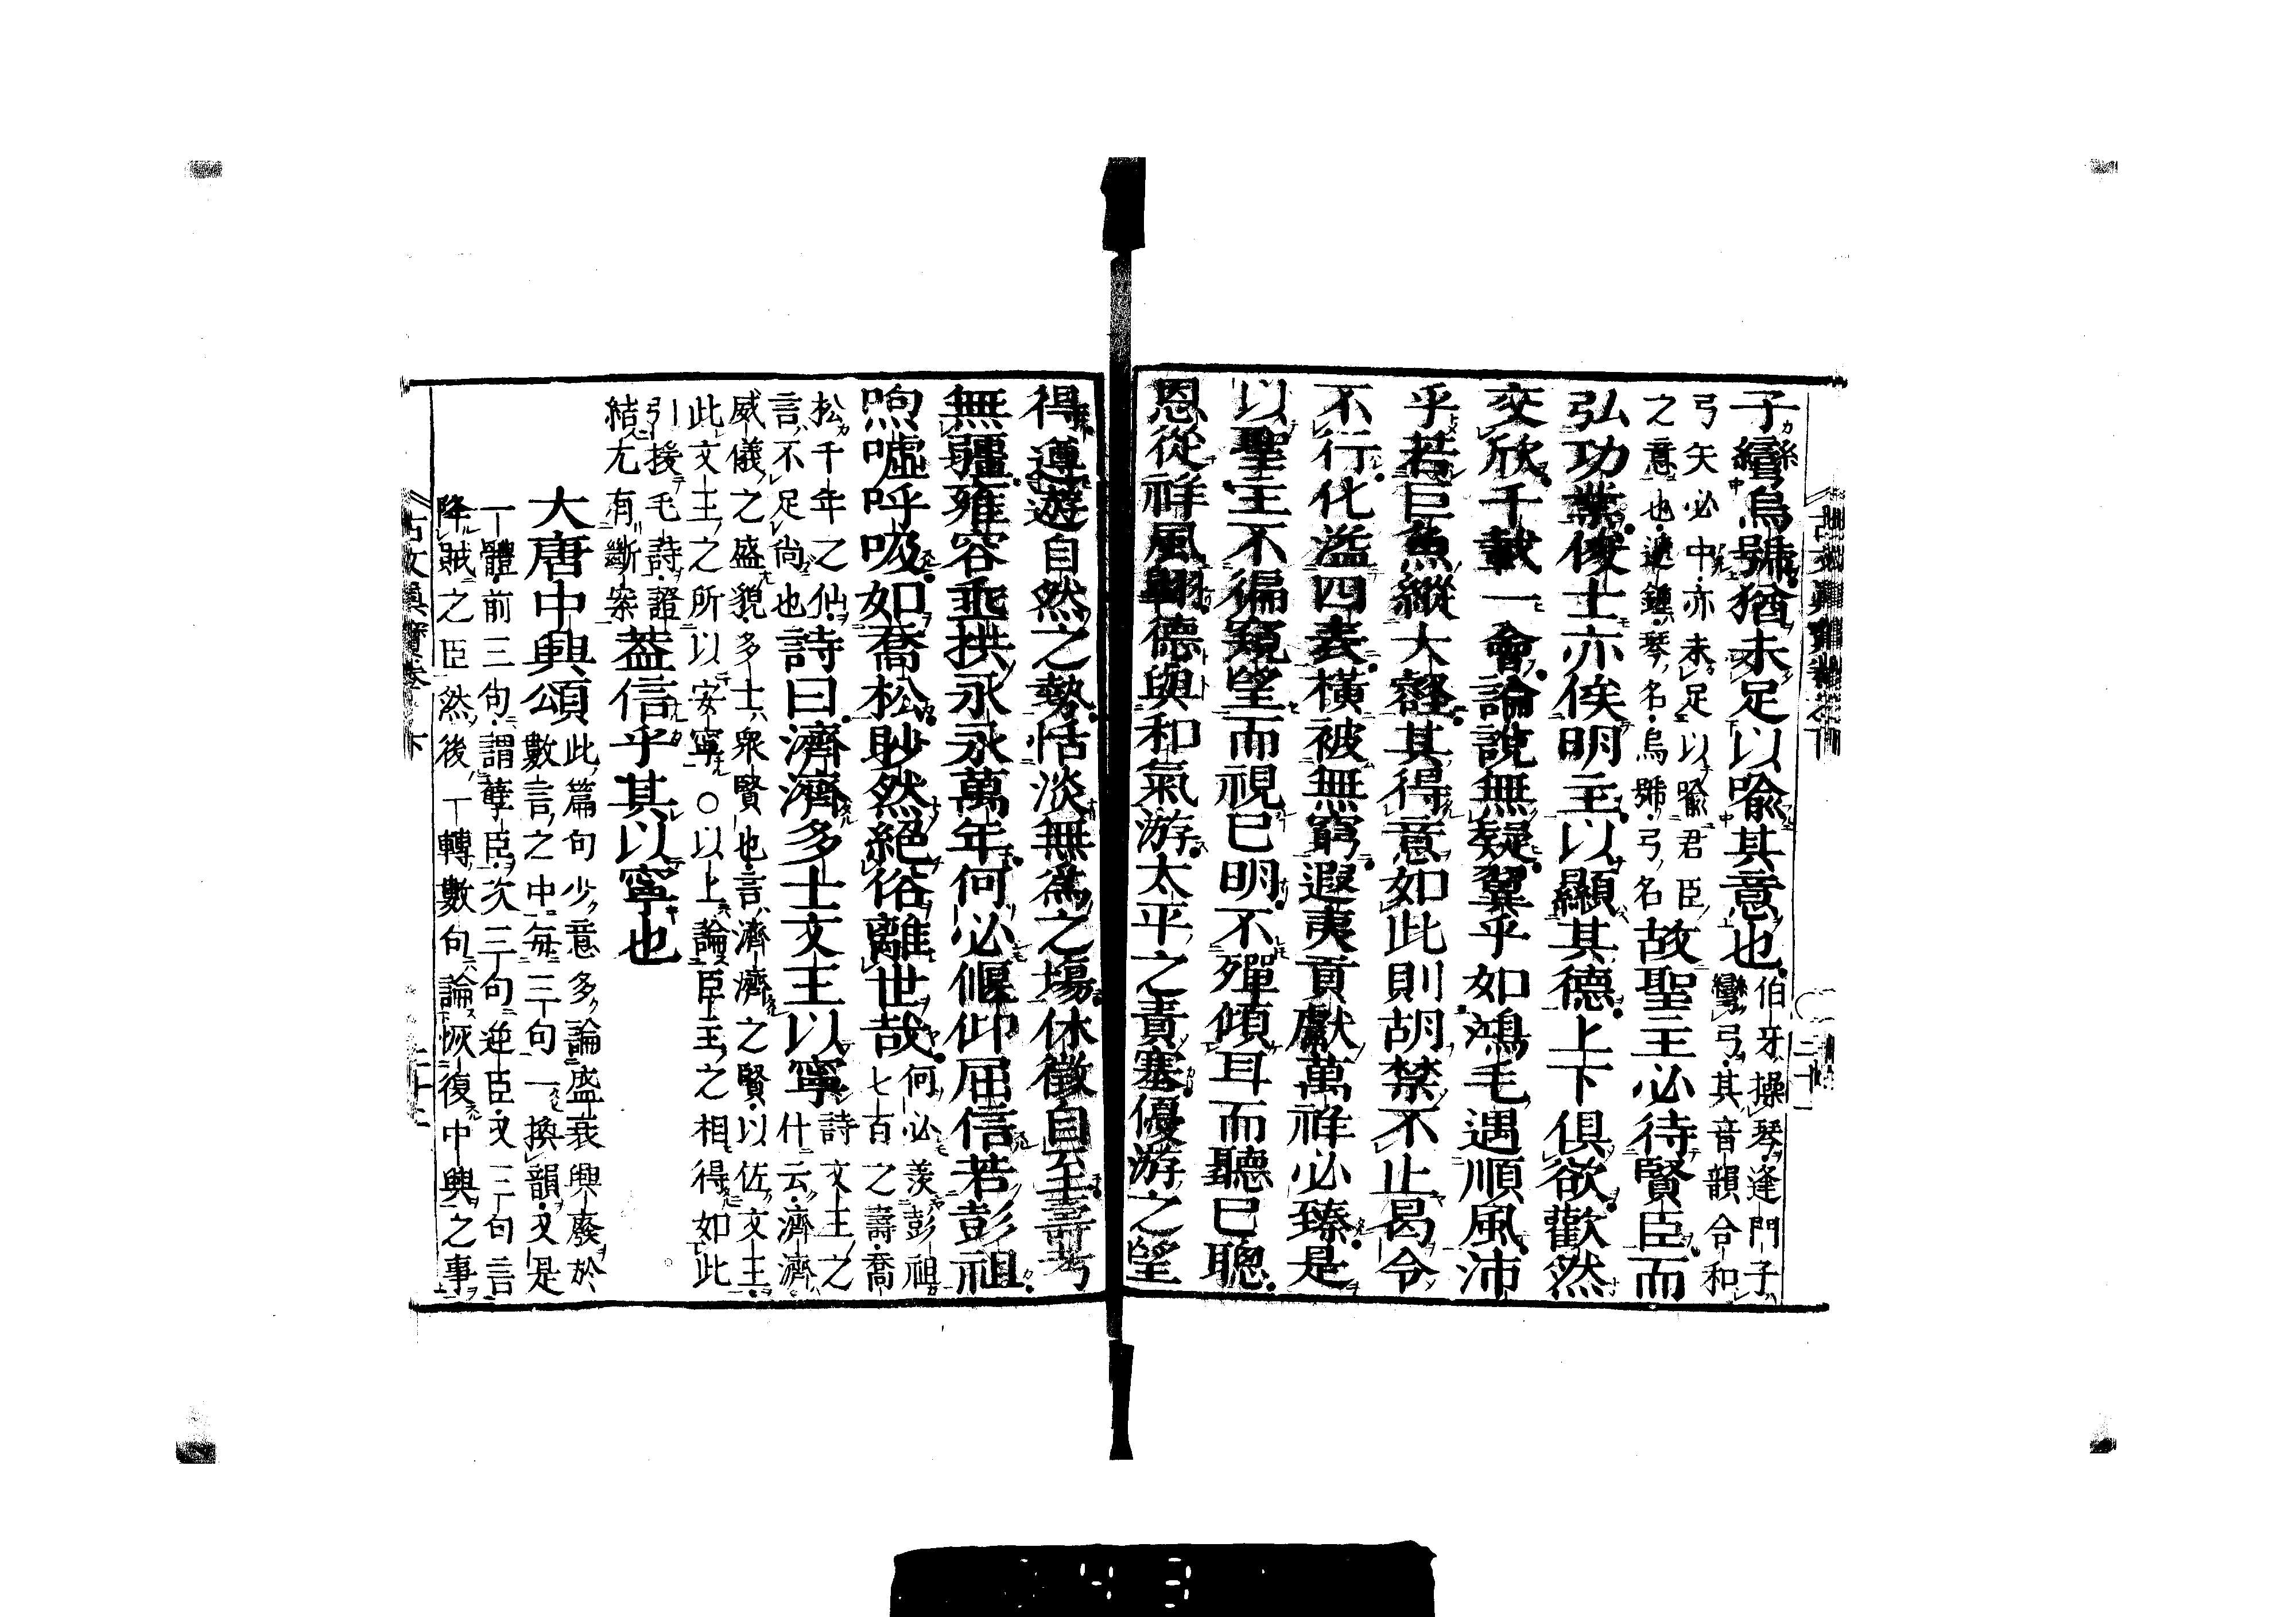 子彎烏號猶未足以喻其意也伯牙操琴逢門子
彎弓其音韻合和
弓矢必中亦未足以喻君臣
之意也遞鍾琴名烏號弓名故聖主必待賢臣而
弘功業俊士亦俟明主以顯其德上下俱欲歡然
交欣千載一會論說無疑翼乎如鴻毛遇順風沛
乎若巨魚縱大壑其得意如此則胡禁不止曷令
不行化溢四表橫被無窮遐夷貢獻萬祥必臻是
以聖主不徧窺望而視已明不殫傾耳而聽已聰
恩從祥風翺德與和氣游太平之責塞優游之望
得遵遊自然之勢恬淡無爲之場休徵自至壽考
無疆雍容垂拱永永萬年何必偃仰屈信若彭祖
呴噓呼吸如喬松眇然絕俗離世哉何必羨彭祖
七百之壽喬
松千年之仙
言不足尚也詩曰濟濟多士文王以寧詩文王之
什云濟濟
威儀之盛貌多士衆賢也言濟濟之賢以佐文王
此文王之所以安寧○以上論臣主之相得如此
引援毛詩證
結尤有斷案葢信乎其以寧也
大唐中興頌此篇句少意多論盛衰興廢於
數言之中每三句一換韻又是
一體前三句謂孽臣次三句逆臣又三句言
降賊之臣然後一轉數句論恢復中興之事
古文眞寶卷下